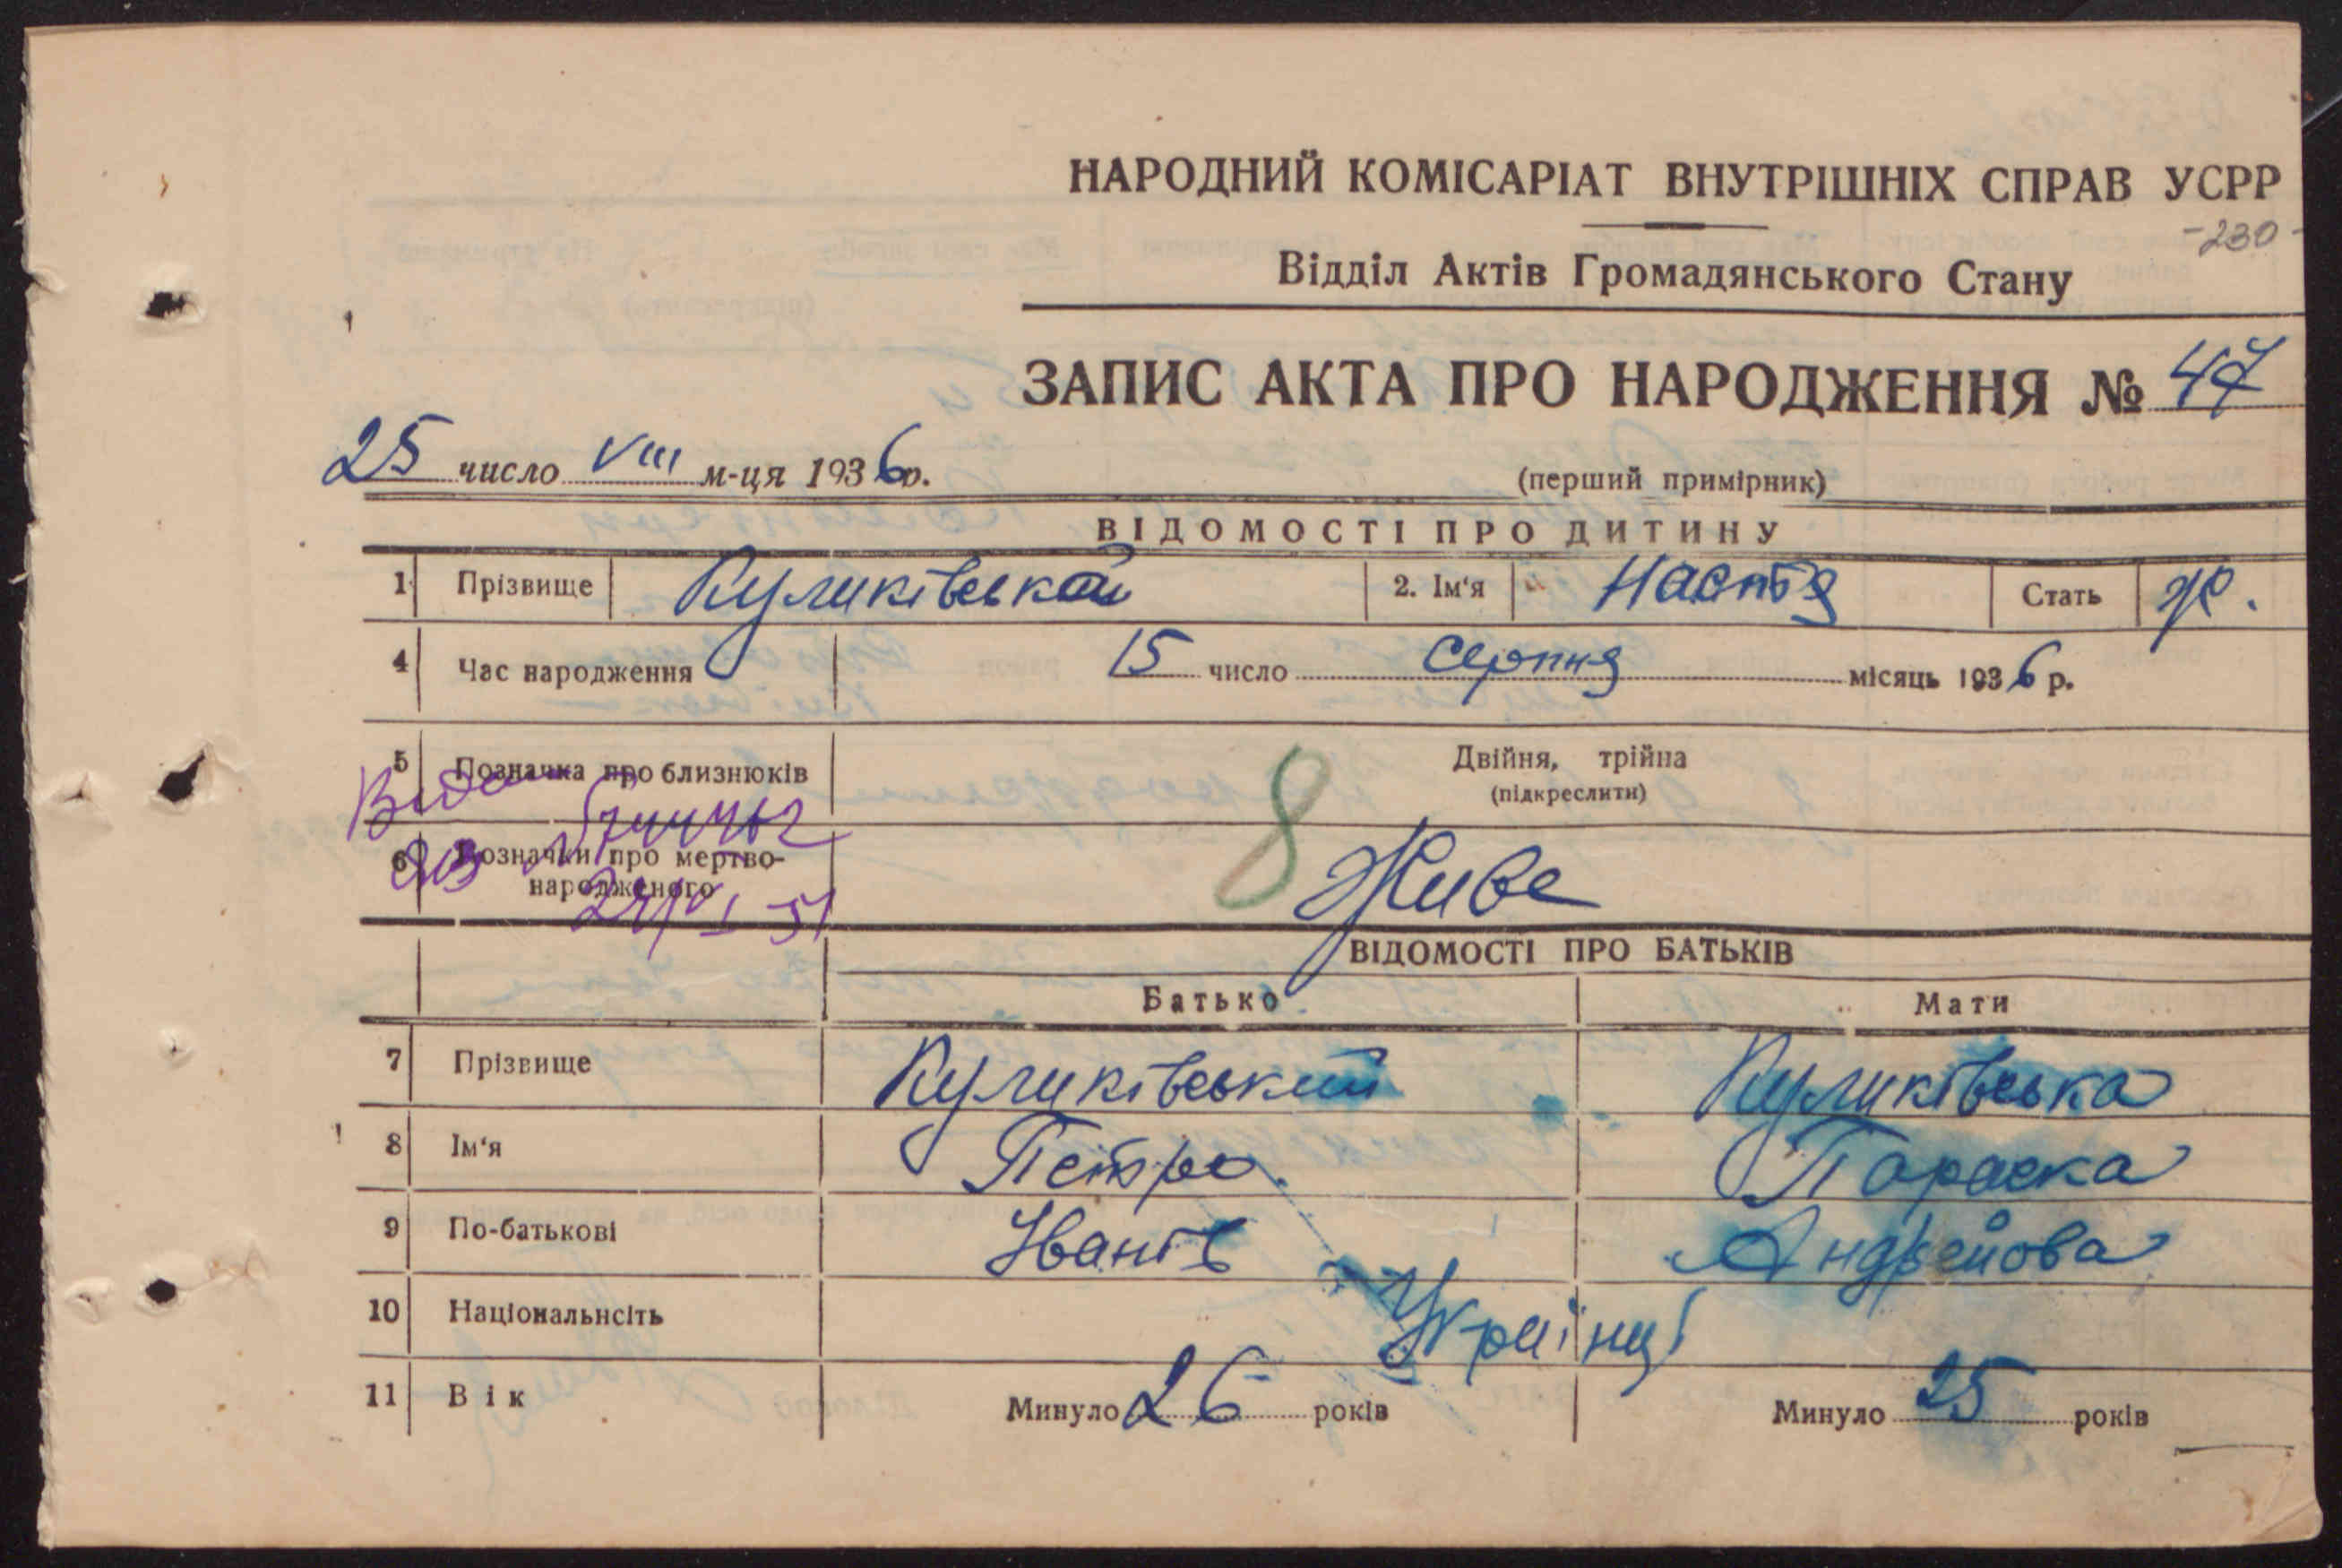 НАРОДНИЙ КОМІСАРІАТ ВНУТРІШНІХ СПРАВ УСРР
-230-
Відділ Актів Громадянського Стану
ЗАПИС АКТА ПРО НАРОДЖЕННЯ № 47
25 число VIII м-ця 1936р.
(перший примірник)
ВІДОМОСТІ ПРО ДИТИНУ
1 Прізвище Куликівська 2. Ім'я Настя Стать ж.
4 Час народження 15 число серпня місяць 1936 р.
5 Позначка про близнюків Двійня, трійна
(підкреслити)
8
6 Позначки про мертво-
народженого Живе
ВІДОМОСТІ ПРО БАТЬКІВ
Батько Мати
7 Прізвище Куликівський Куликівська
8 Ім'я Петро. Параска
9 По-батькові Іванів Андреїова
10 Національнсіть Українці
11 Вік Минуло 26 років Минуло 25 років